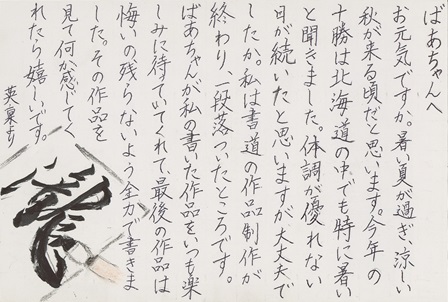 ばあちゃんへ
お元気ですか。暑い夏が過ぎ、涼しい
秋が来る頃だと思います。今年の
十勝は北海道の中でも特に暑い
と聞きました。体調が優れない
日が続いたと思いますが大丈夫で
したか。私は書道の作品制作が
終わり、一段落ついたところです。
ばあちゃんが私の書いた作品をいつも楽
しみに待ていてくれて、最後の作品は
悔いの残らないよう全力で書きま
した。その作品を
見て何か感じてく
れたら嬉しいです。
英里より